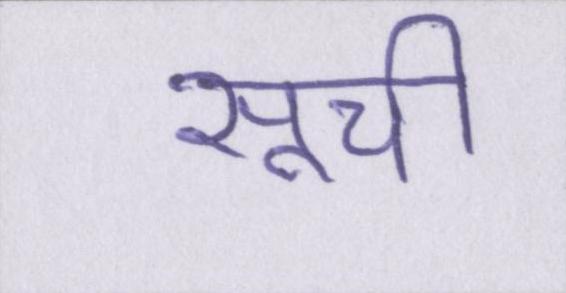 सूची